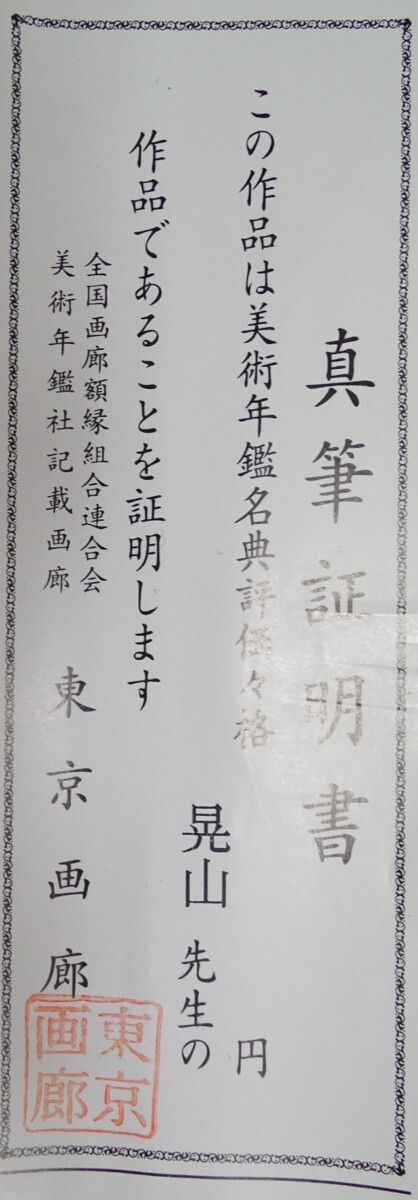 真筆証明書
この作品は美術年鑑名典評価々格 円
晃山先生の
作品であることを証明します
全国画廊額縁組合連合会
美術年鑑社記載画廊
東京画廊
東京
画廊